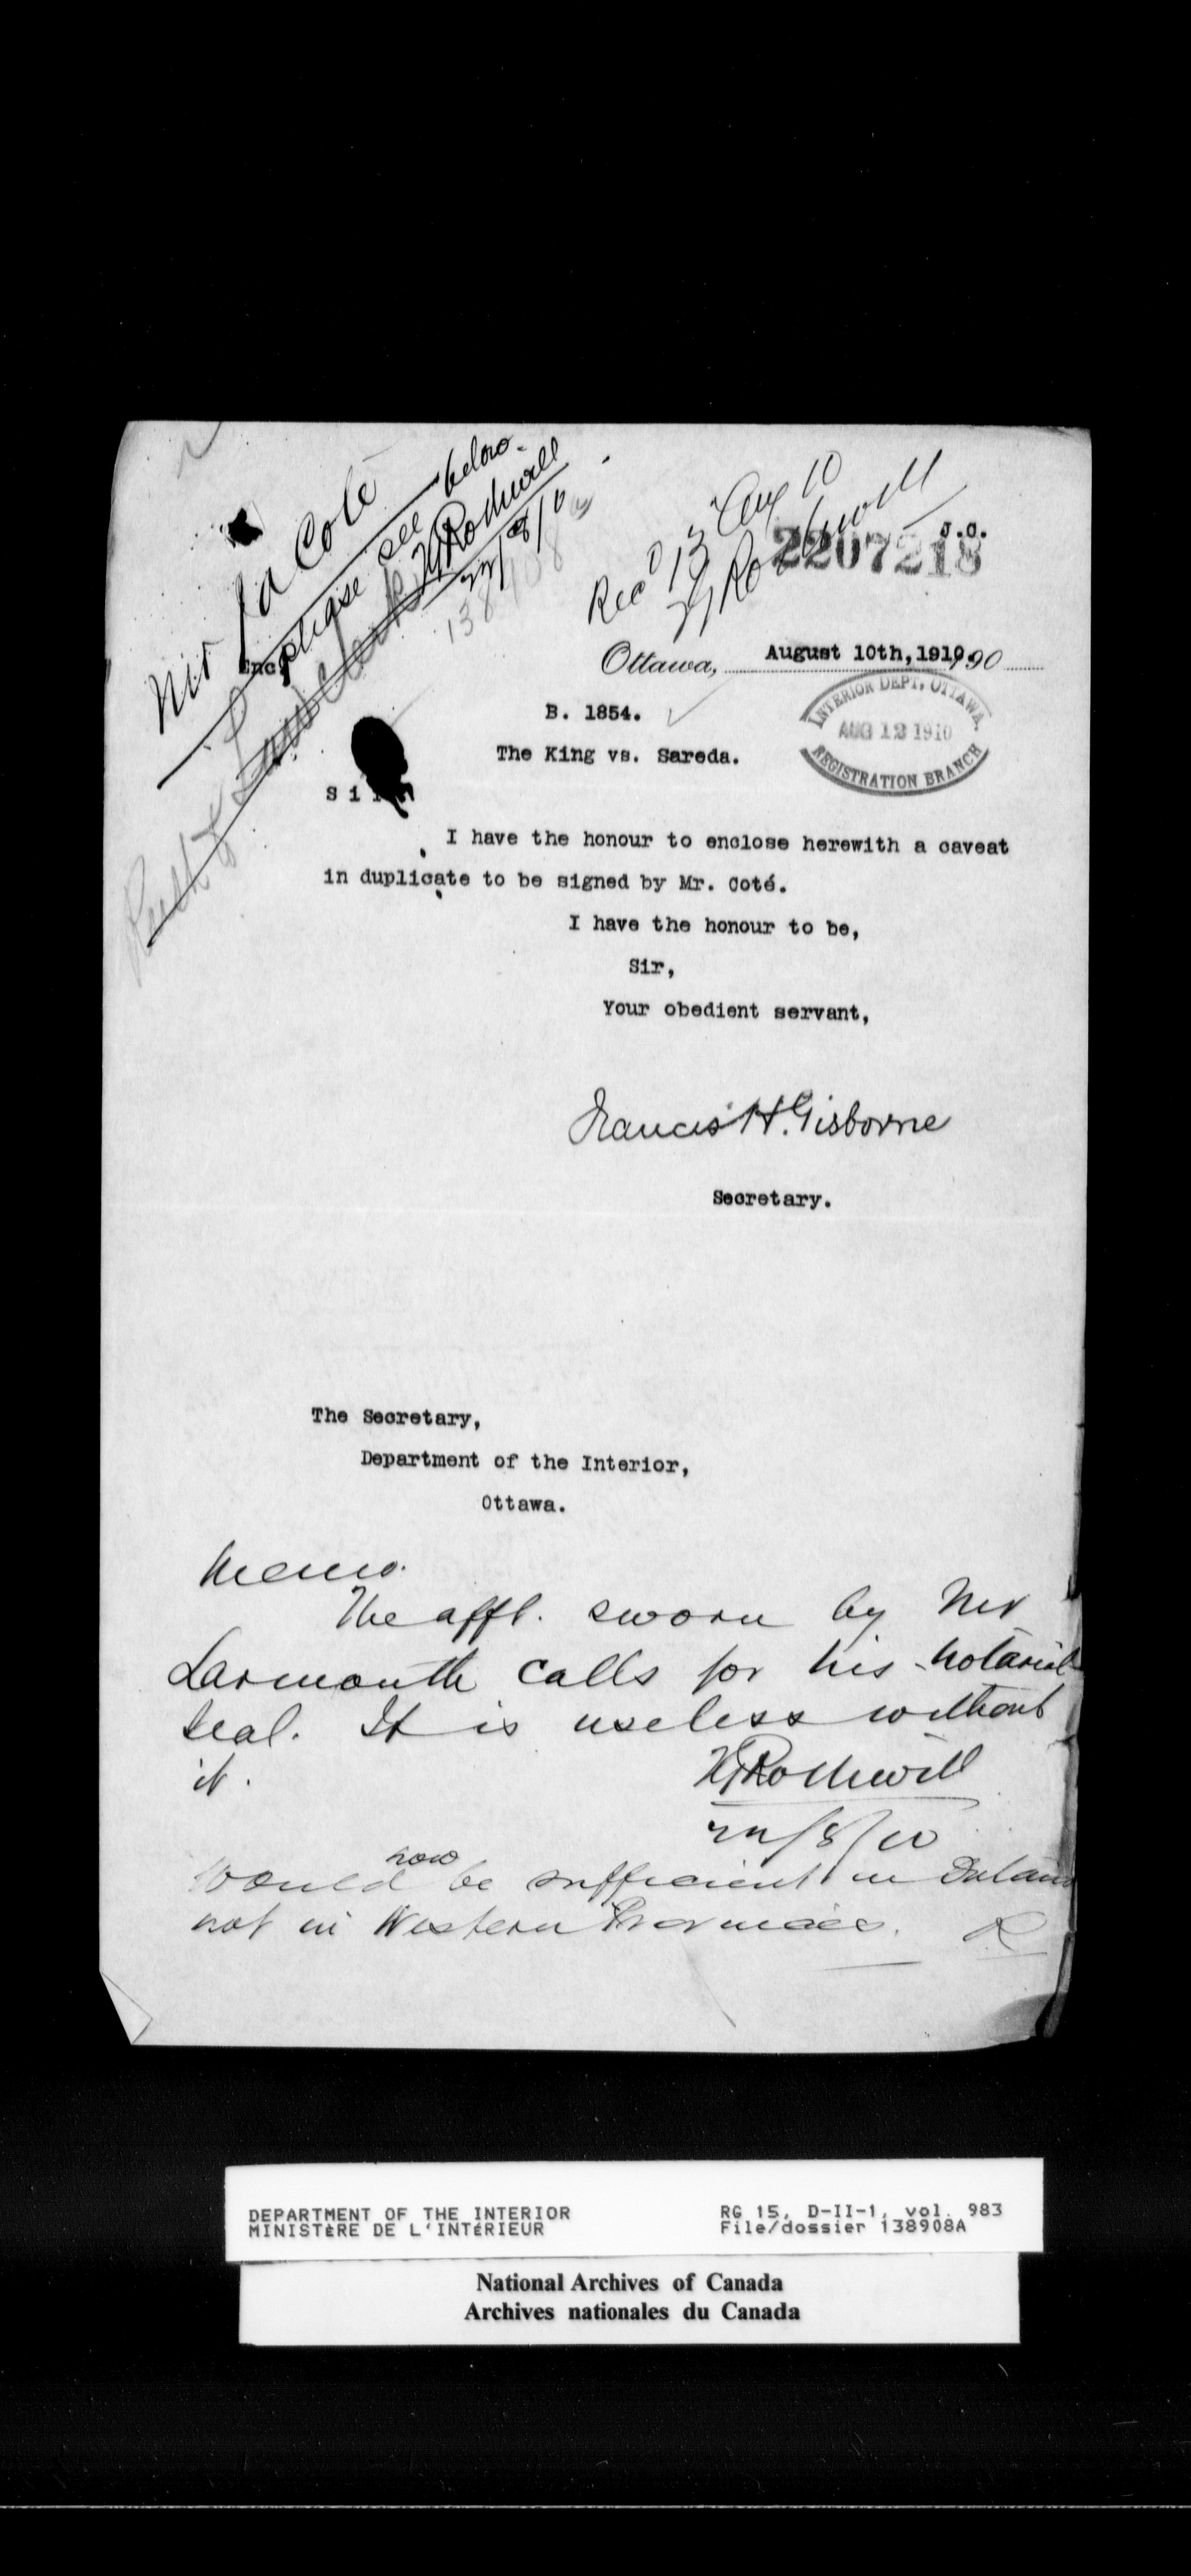 Mr Coté
please see below.
HRothwell
22/8/10
Rec'd 13 Aug 10
HRothwell
J.O.
2207218
Enc.
Ottawa, August 10th, 1910, 190
INTERIOR DEPT, OTTAWA
AUG 12 1910
REGISTRATION BRANCH
B. 1854.
The King vs. Sareda.
Sir
I have the honour to enclose herewith a caveat
in duplicate to be signed by Mr. Coté.
I have the honour to be,
Sir,
Your obedient servant,
Francis H. Gisborne
Secretary.
The Secretary,
Department of the Interior,
Ottawa.
Memo.
The afft. sworn by Mr
Larmonth calls for his notarial
seal. It is useless without
it.
HRothwell
22/8/10
Would now be sufficient in
not in Western Provinces. R
DEPARTMENT OF THE INTERIOR
MINISTÈRE DE L'INTÉRIEUR
RG 15, D-II-1, vol. 983
File/dossier 138908A
National Archives of Canada
Archives nationales du Canada